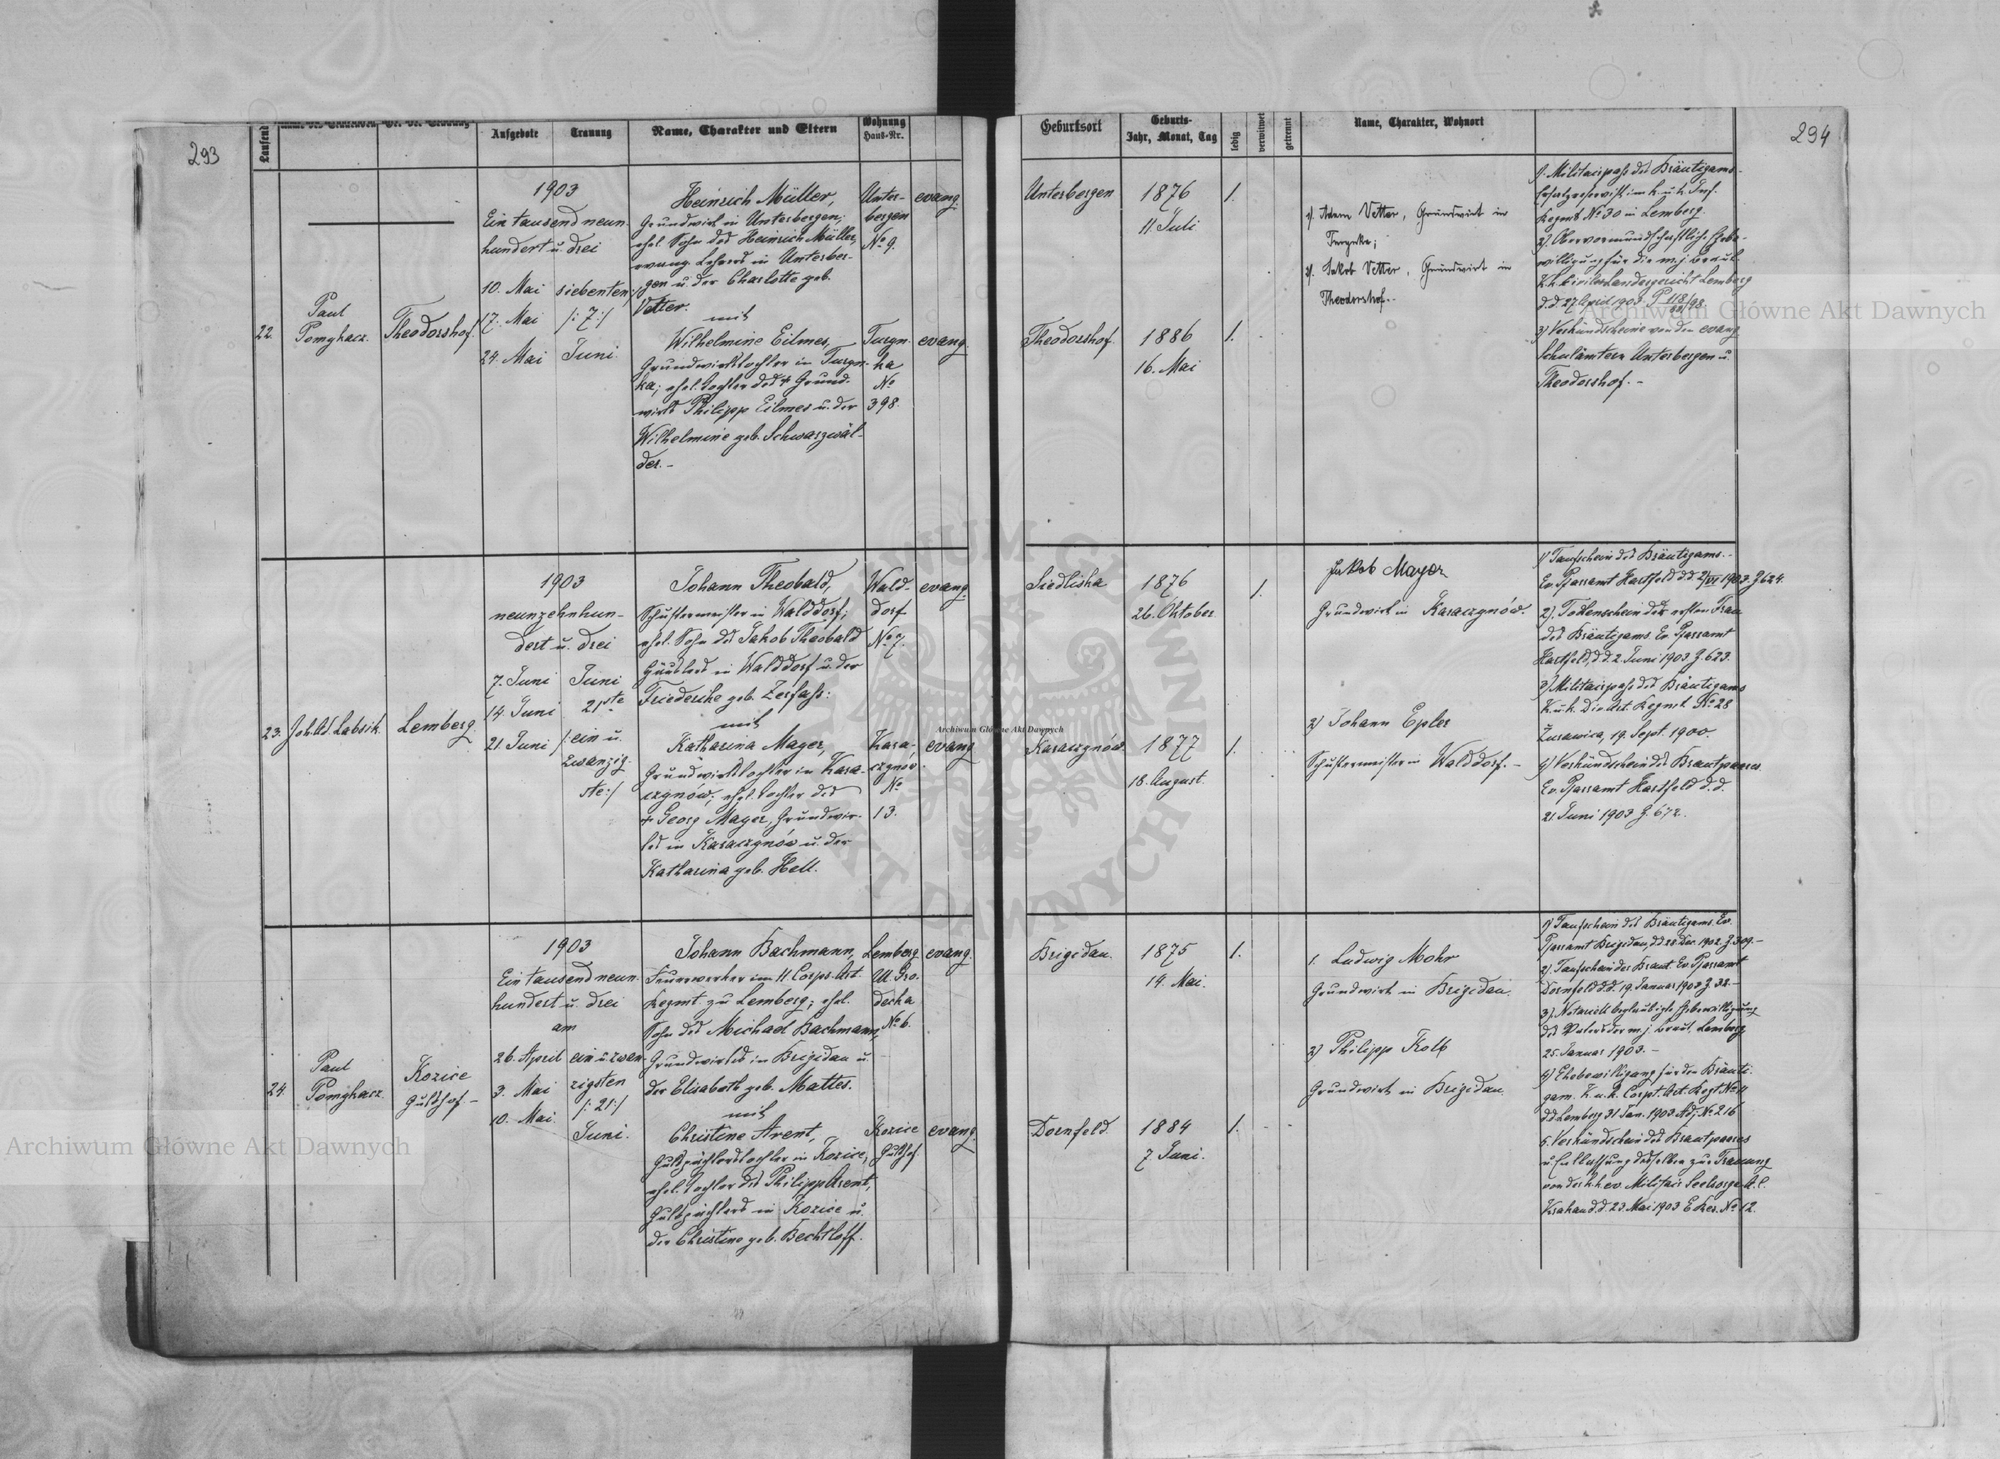 293
294
Laufend
Aufgebote
Trauung
Name, Charakter und Eltern
Wohnung
Haus-Nr.
Geburtsort
Geburts-
Jahr, Monat, Tag
ledig
verwitwet
getrennt
Name, Charakter, Wohnort
22.
Paul
Pomykacz.
Theodorshof.
1903
Ein tausend neun-
hundert u. drei
10. Mai siebenten
17. Mai /: 7:/
24. Mai Juni.
Heinrich Müller,
Grundwirt in Unterbergen;
ehel. Sohn des Heinrich Müller,
evang. Lehrers in Unterber-
gen u. der Charlotte geb.
Vetter.
mit
Wilhelmine Eilmes,
Grundwirtstochter in Turyn-
ka; ehel. Tochter des + Grund-
wirts Philipp Eilmes u. der
Wilhelmine geb. Schwarzwäl-
der. –
Unter-
bergen
No 9.
evang.
Turyn-
ka
No
398.
evang.
Unterbergen
1876
11. Juli
1.
Theodorshof.
1886
16. Mai
1.
1/. Adam Vetter, Grundwirt in
Turynka;
2/. Jakob Vetter, Grundwirt in
Theodorshof. –
1/. Militairpass des Bräutigams –
Ersatzreservist im k. u. k. Inf.
Regmt No 30 in Lemberg.
2/. Obervormundschaftliche Ehebe-
willigung für die m. j. Braut.
K. k. Civiles Landesgericht Lemberg
d. d. 27 April 1903. P 118/98
3/ Verkündscheine von den evang.
Schulämtern Unterbergen u.
Theodorshof. –
23.
Joh. Ld. Labsik.
Lemberg.
1903
neunzehnhun-
dert u. drei
7. Juni Juni
14. Juni 21ste
21. Juni /: ein u.
zwanzig-
ste:/
Johann Theobald,
Schustermeister in Walddorf;
ehel. Sohn des Jakob Theobald
Häuslers in Walddorf u. der
Friederike geb. Zerfass.
mit
Katharina Mayer,
Grundwirtstochter in Kara-
czynów; ehel. Tochter des
+ Georg Mayer, Grundwir-
tes in Karaczynów u. der
Katharina geb. Hell.
Wald-
dorf
No 7.
evang.
Kara-
czynov.
No
13.
evang.
Siedliska
1876
26. Oktober
1.
Karaczynów.
1877
18. August.
1.
Jakob Mayer
Grundwirt in Karaczynów.
2/ Johann Epler
Schustermeister in Walddorf. –
1/ Taufschein des Bräutigams. –
Ev. Pfarramt Hartfeld d. d. 2/VI 1903 Z 624.
2/. Todtenschein der ersten Frau
des Bräutigams. Ev. Pfarramt
Hartfeld, d. d. 2. Juni 1903 Z. 623.
3/. Militairpass des Bräutigams
K. u. k. Div. Art. Regmt No 28
Żurawica, 19. Sept. 1900.
4/ Verkündschein des Brautpaares
Ev. Pfarramt Hartfeld d. d.
21. Juni 1903 Z. 672.
24.
Paul
Pomykacz.
Kozice
Gutshof –
1903
Ein tausend neun-
hundert u. drei
am
26. April ein u. zwan-
3. Mai zigsten
10. Mai /: 21:/
Juni.
Johann Bachmann,
Feuerwerker im 11 Corps. Art.
Regmt zu Lemberg; ehel.
Sohn des Michael Bachmann,
Grundwirts in Brigidau u.
der Elisabeth geb. Mattes.
mit
Christine Arent,
Gutspächterstochter in Kozice,
ehel. Tochter des Philipp Arent,
Gutspächters in Kozice u.
der Christine geb. Bechtloff.
Lemberg
Ul. Gro-
decka
No 6.
evang.
Kozice
Gutshof
evang.
Brigidau.
1875
14. Mai.
1.
Dornfeld.
1884
7 Juni.
1.
1. Ludwig Mohr
Grundwirt in Brigidau.
2/ Philipp Kolb
Grundwirt in Brigidau.
1/ Taufschein des Bräutigams Ev.
Pfarramt Brigidau, d. d. 28. Dec. 1902. Z. 309. –
2/. Taufschein der Braut. Ev. Pfarramt
Dornfeld d. d. 19. Januar 1903 Z. 38. –
3/. Notariell beglaubigte Ehebewilligung
des Vaters der m. j. Braut. Lemberg
25. Januar 1903. –
4/ Ehebewilligung für den Bräuti-
gam. K. u. k. Corps. Art. Regt. No 11
d. d. Lemberg 31 Jan. 1903 Adj. No 216
5. Verkündschein des Brautpaares
u. Entlassung desselben zur Trauung
von der k. k. ev. Militair Seelsorge A. C.
Krakau d. d. 23 Mai 1903 E Res. No 12.
Archiwum Główne Akt Dawnych
Archiwum Główne Akt Dawnych
Archiwum Główne Akt Dawnych